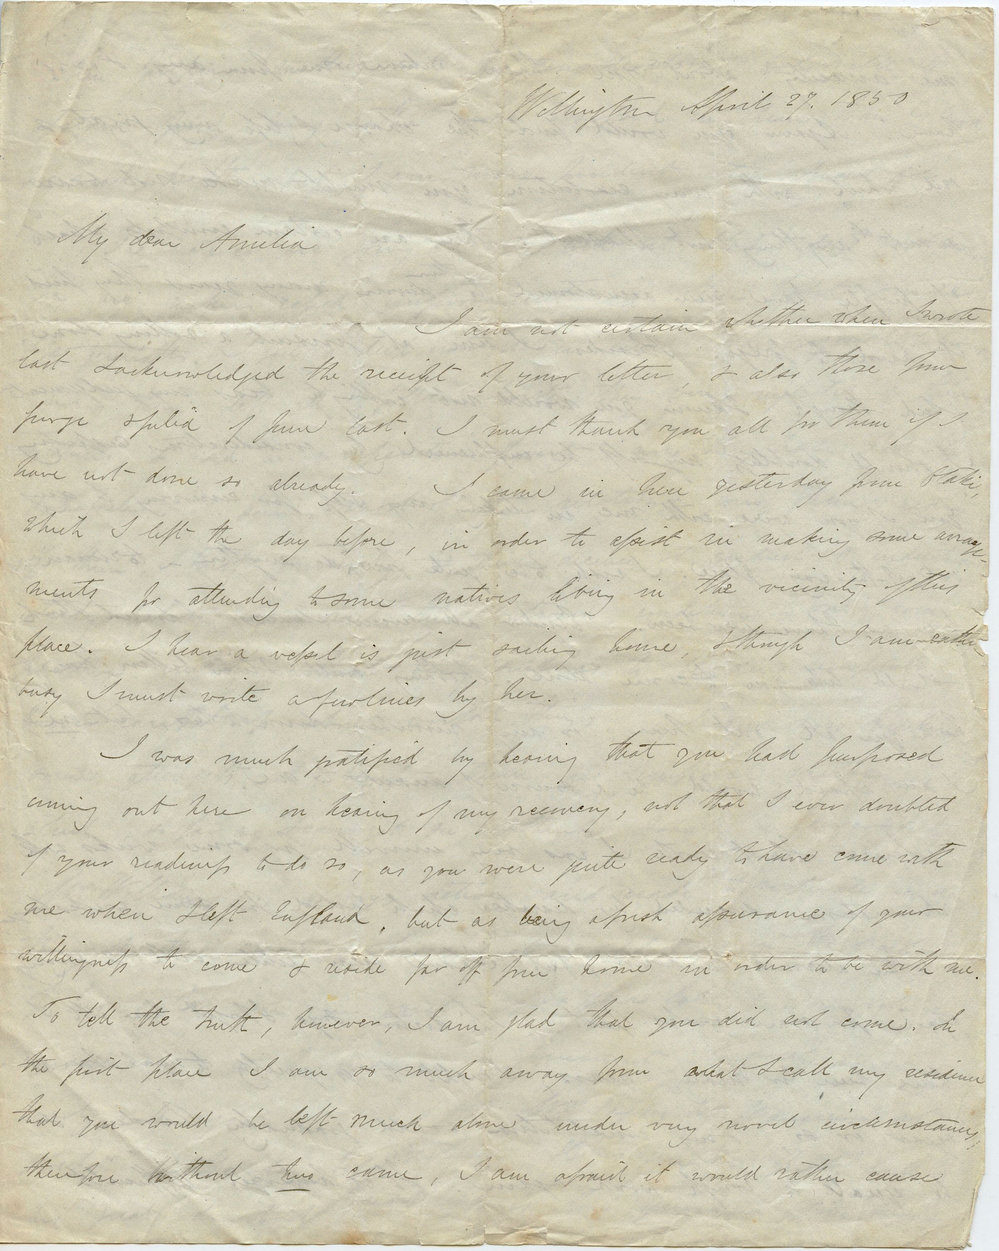 Wellington April 27. 1850
My dear Amelia
I am not certain whether when I wrote
last I acknowledged the receipt of your letter, & also those from
of June last. I must thank you all for them if I
have not done so already. I came in here yesterday from Otaki,
which I left the day before, in order to assist in making some arrange-
ments for attending to some natives living in the vicinity of this
place. I hear a vessel is just sailing home, & though I am rather
busy I must write a few lines by her.
I was much gratified by hearing that you had purposed
coming out here on hearing of my recovery, not that I ever doubted
of your readiness to do so, as you were quite ready to have come with
me when I left England, but as being a fresh assurance of your
willingness to come & reside far off from home in order to be with me.
To tell the truth, however, I am glad that you did not come. In
the first place I am so much away from what I call my residence
that you would be left much alone under very novel circumstances,
therefore without came, I am afraid it would rather cause